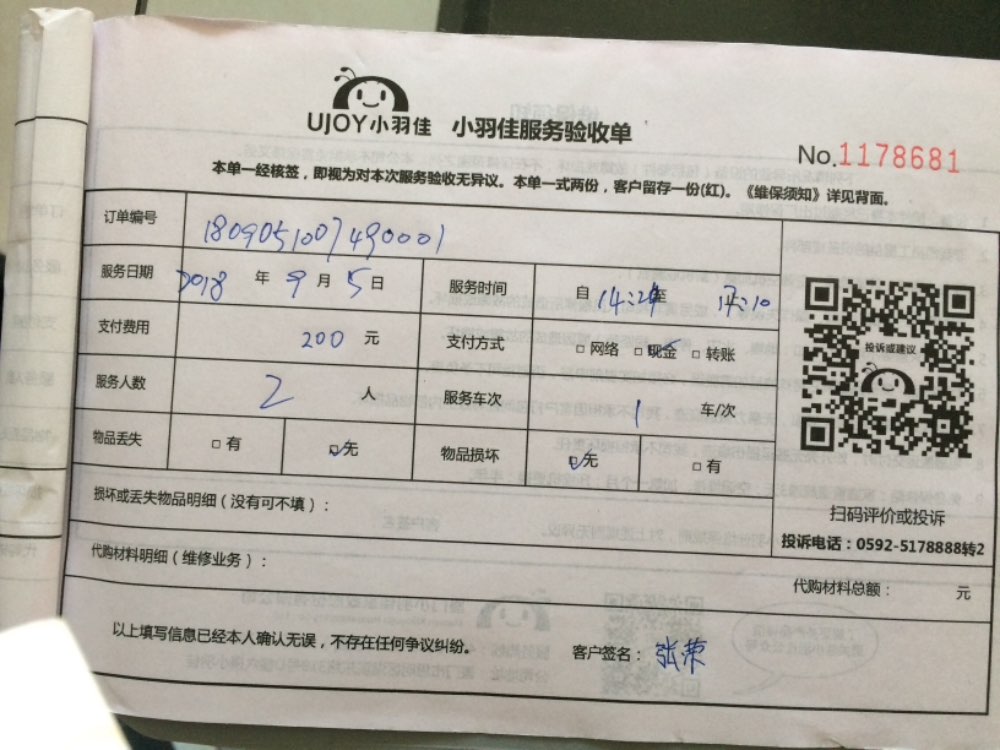 UJOY小羽佳 小羽佳服务验收单
No.1178681
本单一经核签，即视为对本次服务验收无异议。本单一式两份，客户留存一份(红)。《维保须知》详见背面。
订单编号 1809051007490001
服务日期 2018 年 9 月 5 日 服务时间 自 14:24 至 17:10
支付费用 200 元 支付方式 □网络 □现金 □转账
服务人数 2 人 服务车次 1 车/次
物品丢失 □有 ☑无 物品损坏 ☑无 □有
投诉或建议
损坏或丢失物品明细（没有可不填）：
扫码评价或投诉
投诉电话：0592-5178888转2
代购材料明细（维修业务）：
代购材料总额： 元
以上填写信息已经本人确认无误，不存在任何争议纠纷。 客户签名： 张荣